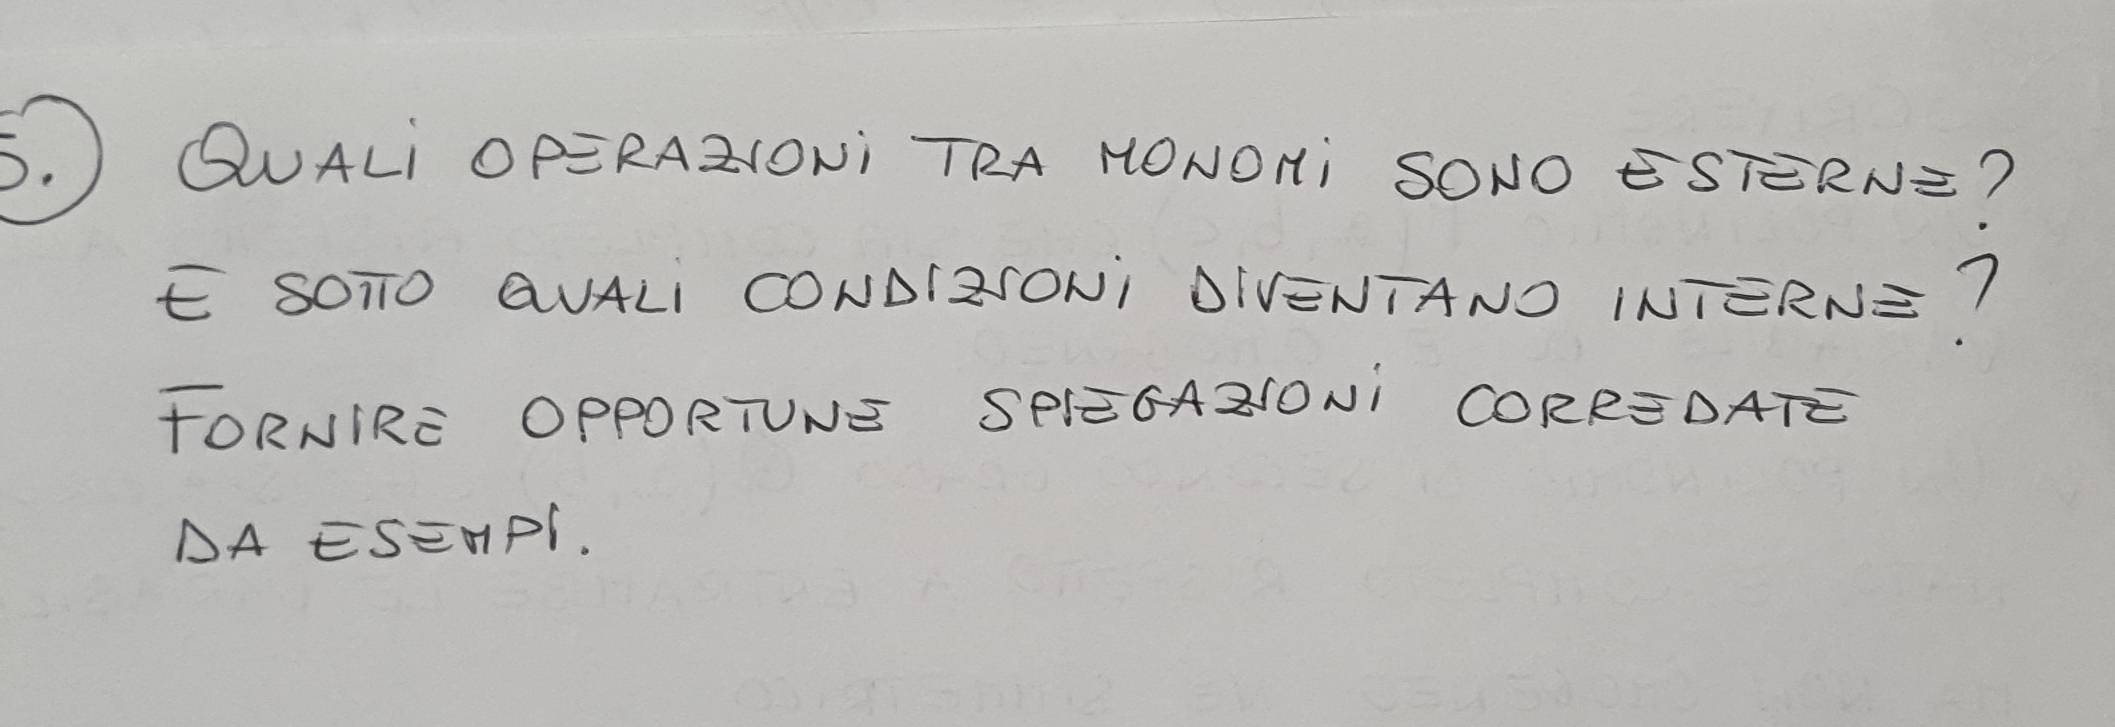 5.) QUALI OPERAZIONI TRA MONOMI SONO ESTERNE?
E SOTTO QUALI CONDIZIONI DIVENTANO INTERNE?
FORNIRE OPPORTUNE SPIEGAZIONI CORREDATE
DA ESEMPI.